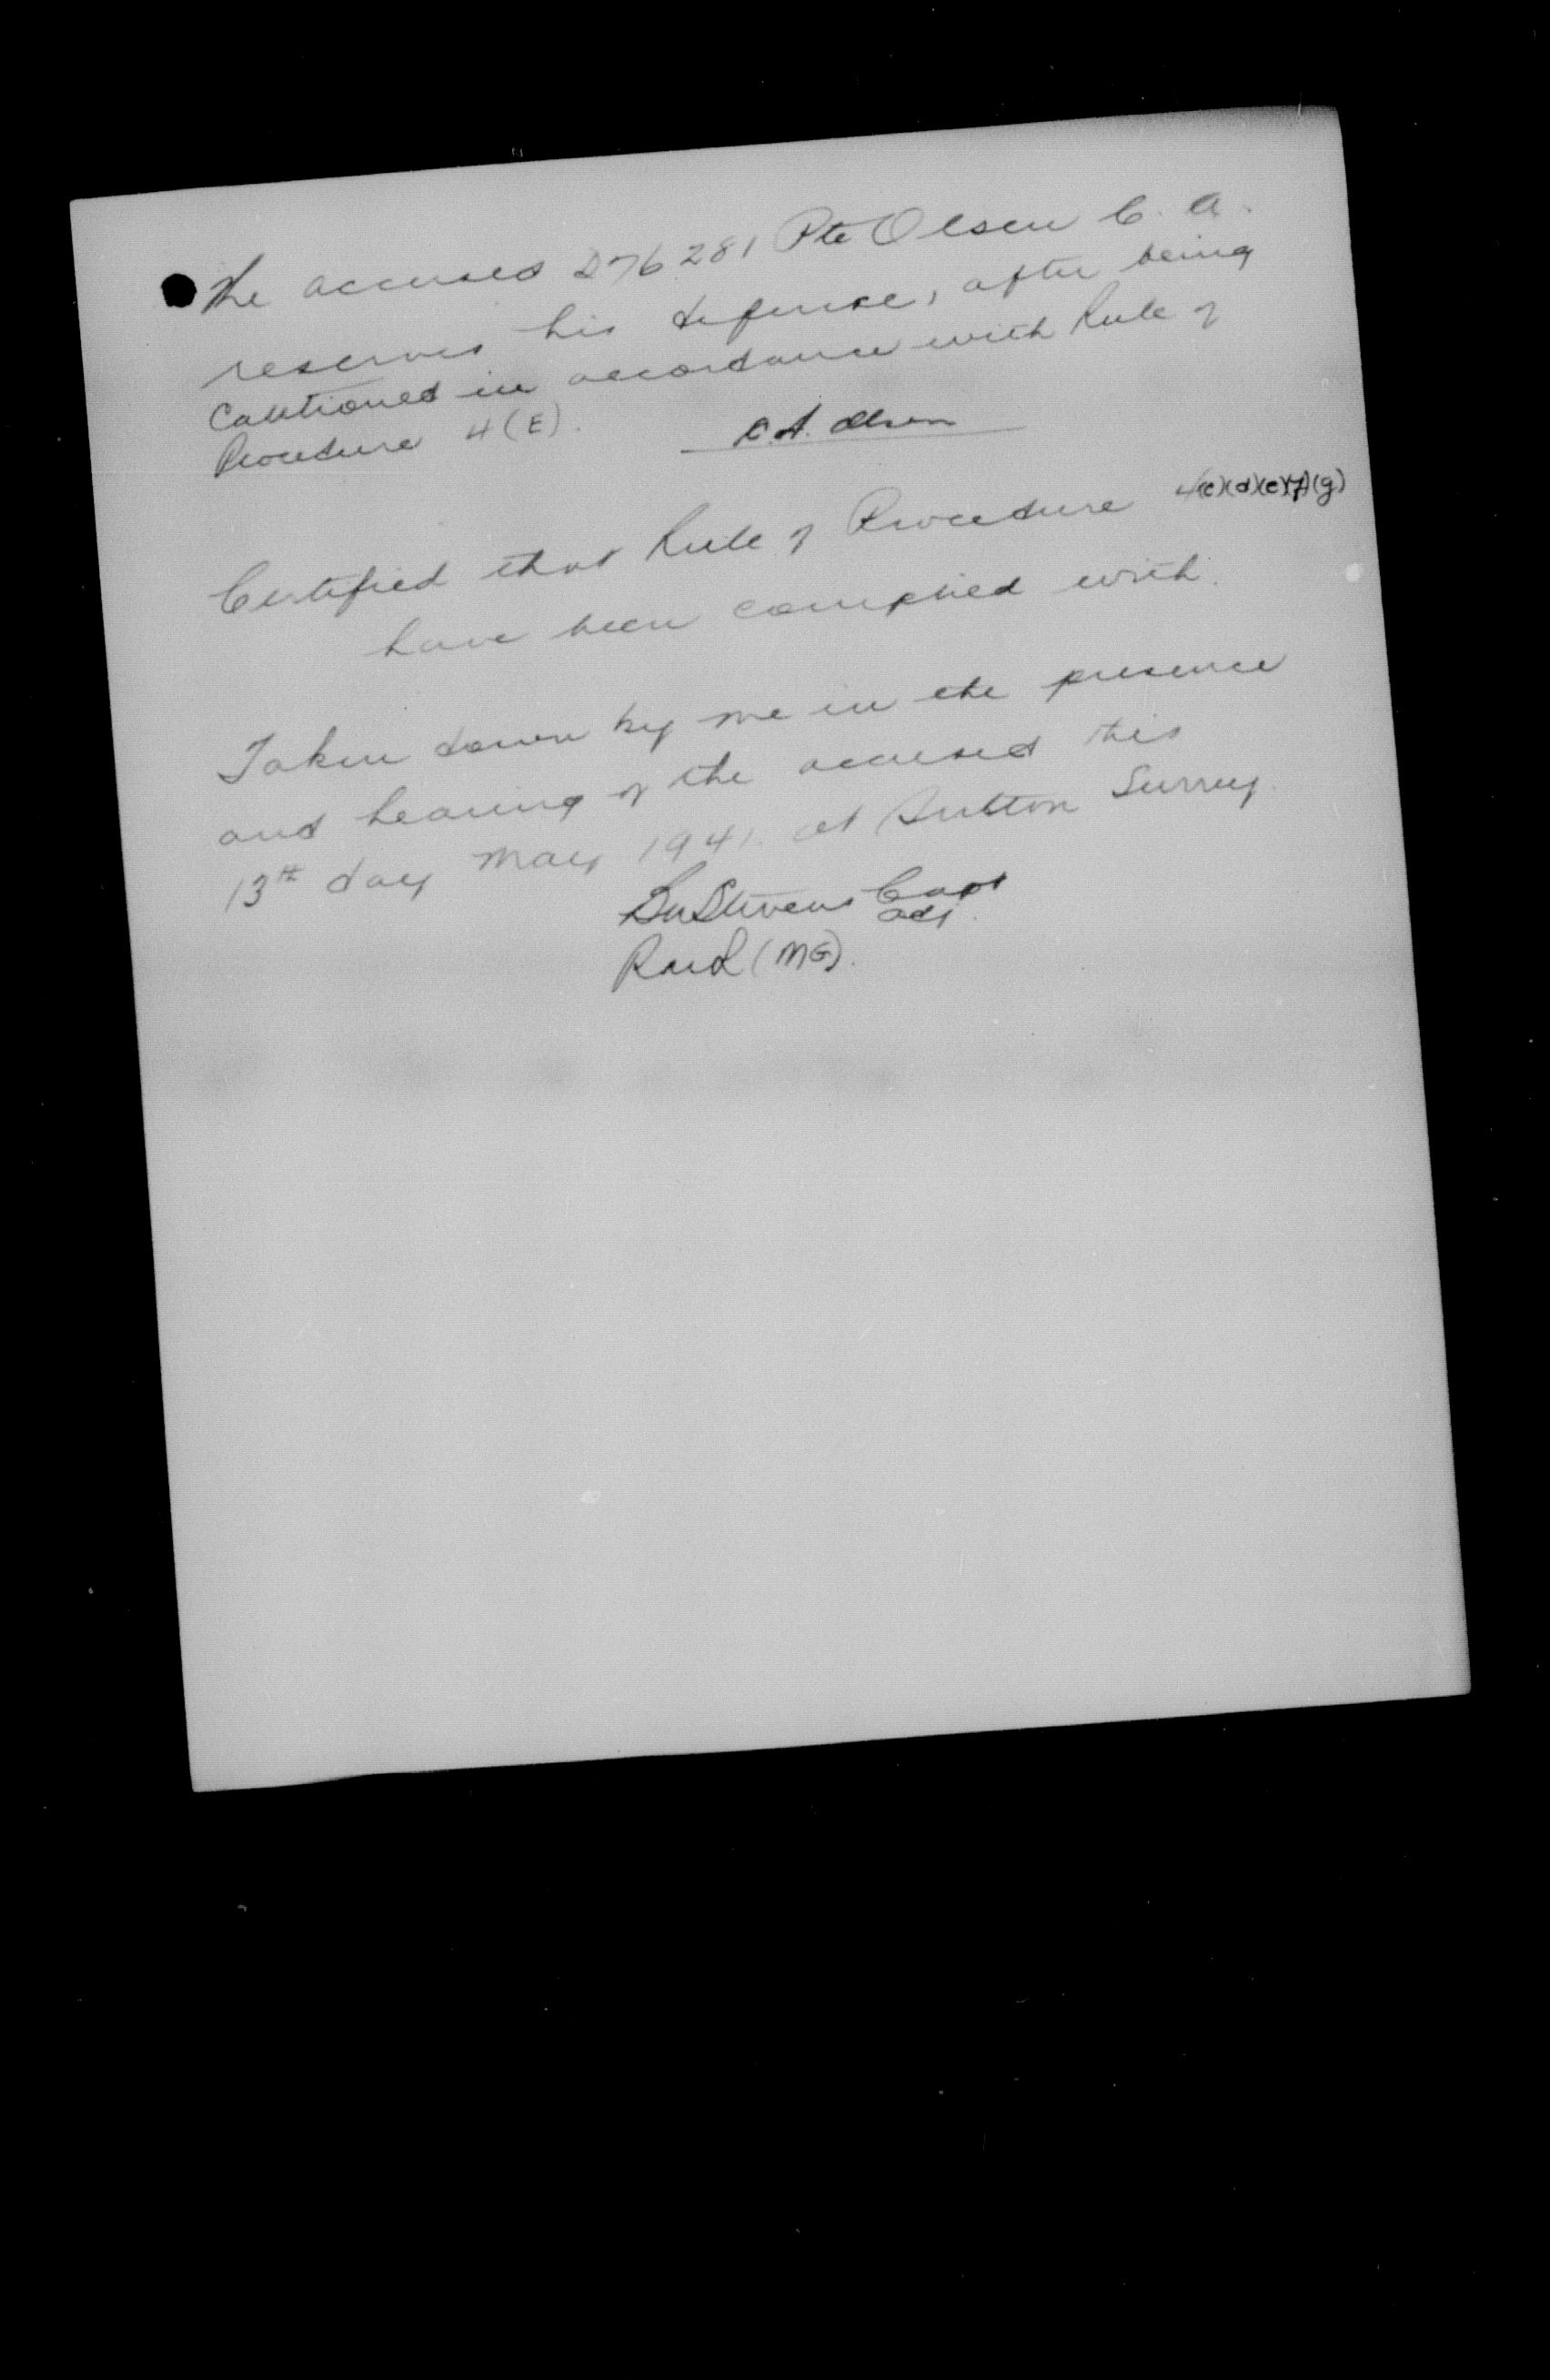 The accused D76281 Pte Olsen C. A.
reserves his defense, after being
Cautioned in accordance with Rule of
Procedure 4 (E).
C. A. Olsen
Certified that Rule of Procedure 4(c)(d)(e)(f)(g)
have been complied with.
Taken down by me in the presence
and hearing of the accused this
13th day May 1941. at Sutton Surrey.
Stevens Capt
adj.
(MG).